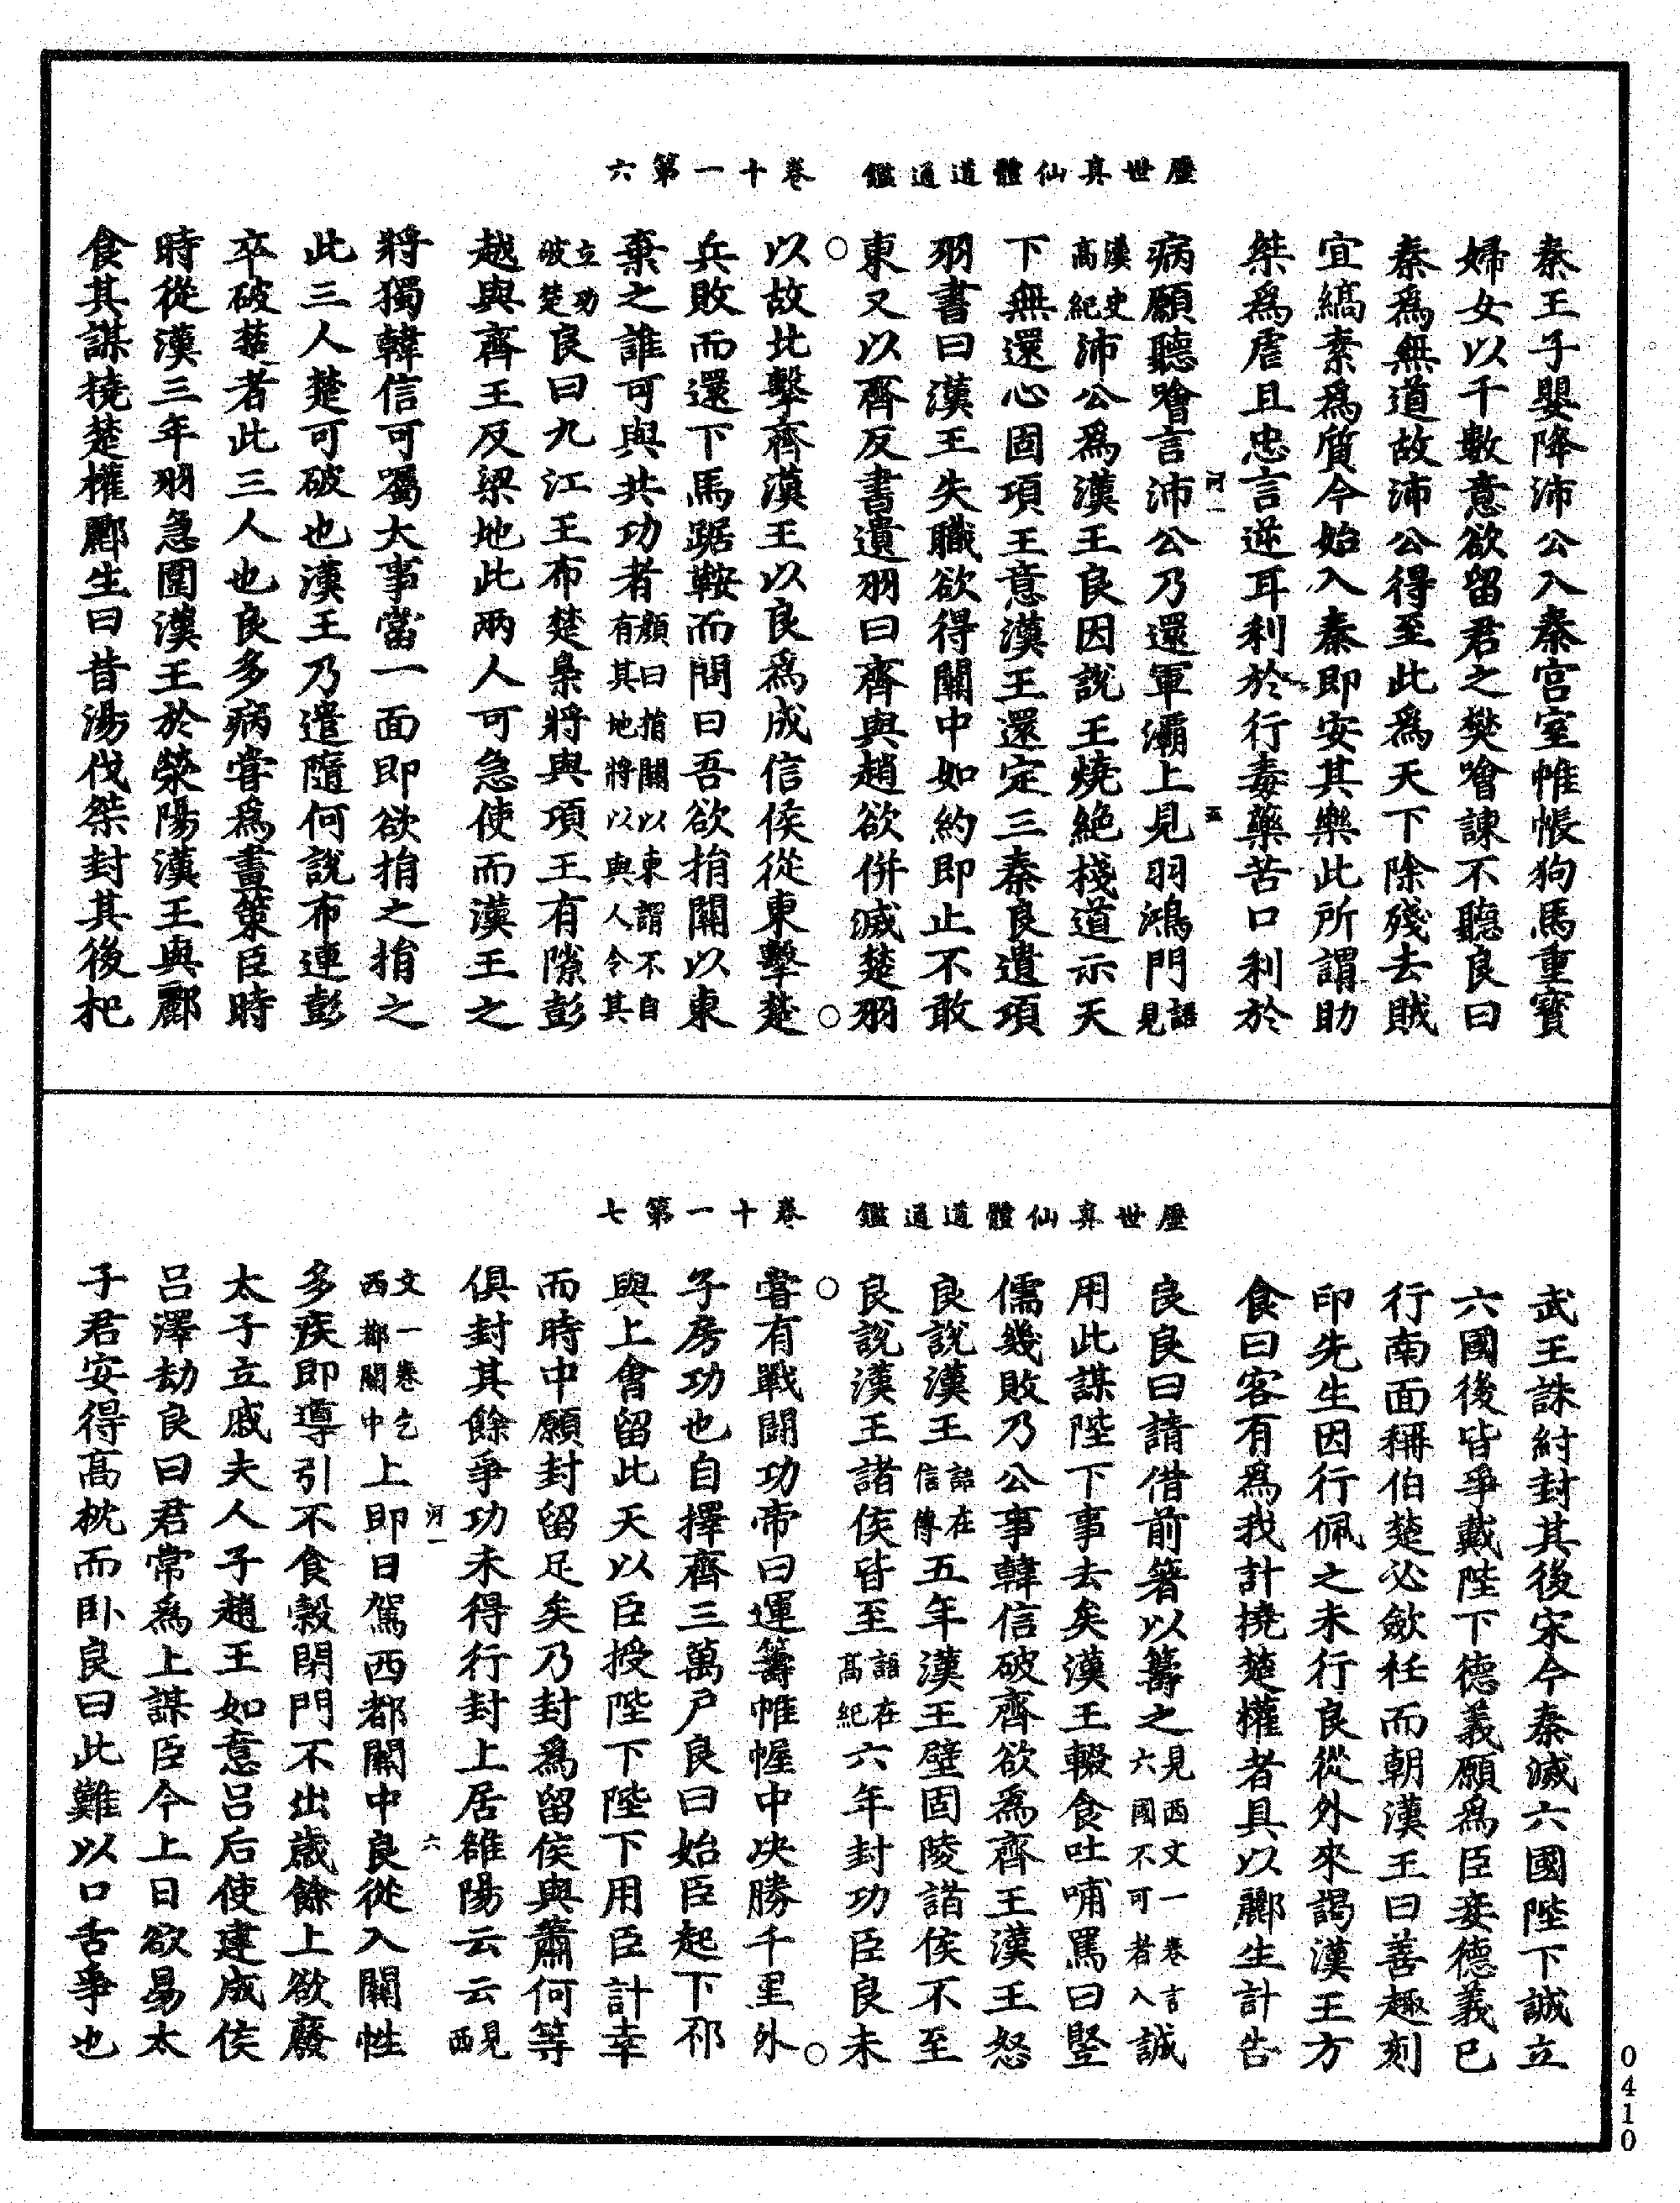 歷世真仙體道通鑑　卷十一第六
秦王子嬰降沛公入秦宮室帷帳狗馬重寶
婦女以千數意欲留君之樊噲諫不聽良曰
秦爲無道故沛公得至此爲天下除殘去賊
宜縞素爲質今始入秦即安其樂此所謂助
桀爲虐且忠言逆耳利於行毒藥苦口利於
河一　五
病願聽噲言沛公乃還軍灞上見羽鴻門語見
漢史高紀沛公爲漢王良因說王燒絕棧道示天
下無還心固項王意漢王還定三秦良遺項
羽書曰漢王失職欲得關中如約即止不敢
東又以齊反書遺羽曰齊與趙欲併滅楚羽
以故北擊齊漢王以良爲成信侯從東擊楚
兵敗而還下馬踞鞍而問曰吾欲捐關以東
棄之誰可與共功者顏曰捐關以東謂不自有其地將以與人令其
立功破楚良曰九江王布楚梟將與項王有隙彭
越與齊王反梁地此兩人可急使而漢王之
將獨韓信可屬大事當一面即欲捐之捐之
此三人楚可破也漢王乃遣隨何說布連彭
卒破楚者此三人也良多病嘗爲畫策臣時
時從漢三年羽急圍漢王於滎陽漢王與酈
食其謀撓楚權酈生曰昔湯伐桀封其後杞
歷世真仙體道通鑑　卷十一第七
武王誅紂封其後宋今秦滅六國陛下誠立
六國後皆爭戴陛下德義願爲臣妾德義已
行南面稱伯楚必斂衽而朝漢王曰善趣刻
印先生因行佩之未行良從外來謁漢王方
食曰客有爲我計撓楚權者具以酈生計告
良良曰請借前箸以籌之見西文一卷言六國不可者八誠
用此謀陛下事去矣漢王輟食吐哺罵曰豎
儒幾敗乃公事韓信破齊欲爲齊王漢王怒
良說漢王語在信傳五年漢王壁固陵諸侯不至
良說漢王諸侯皆至語在高紀六年封功臣良未
嘗有戰鬬功帝曰運籌帷幄中决勝千里外
子房功也自擇齊三萬戶良曰始臣起下邳
與上會留此天以臣授陛下陛下用臣計幸
而時中願封留足矣乃封爲留侯與蕭何等
俱封其餘爭功未得行封上居雒陽云云見西
河一　六
文一卷乞西都關中上即日駕西都關中良從入關性
多疾即導引不食穀閉門不出歲餘上欲廢
太子立戚夫人子趙王如意呂后使建成侯
呂澤劫良曰君常爲上謀臣今上日欲易太
子君安得高枕而卧良曰此難以口舌爭也
0410